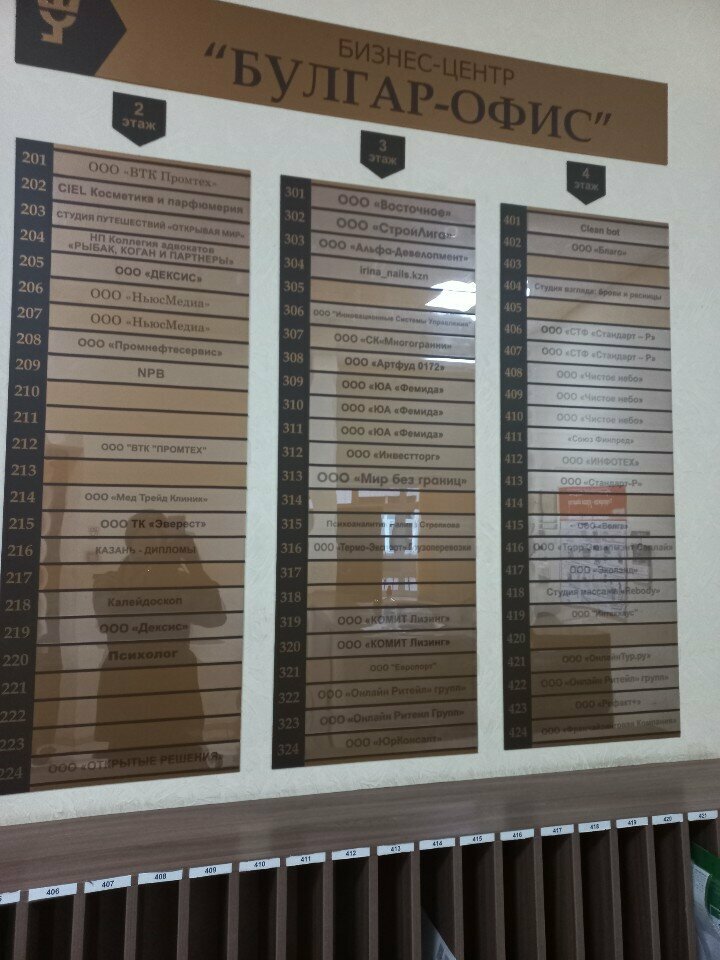 БИЗНЕС-ЦЕНТР
"БУЛГАР-ОФИС"
2
этаж
201 ООО «ВТК Промтех»
202 CIEL Косметика и парфюмерия
203 СТУДИЯ ПУТЕШЕСТВИЙ «ОТКРЫВАЯ МИР»
204 НП Коллегия адвокатов
«РЫБАК, КОГАН И ПАРТНЕРЫ»
205 ООО «ДЕКСИС»
206 ООО «НьюсМедиа»
207 ООО «НьюсМедиа»
208 ООО «Промнефтесервис»
209 NPB
210
211
212 ООО "ВТК "ПРОМТЕХ"
213
214 ООО «Мед Трейд Клиник»
215 ООО ТК «Эверест»
216 КАЗАНЬ - ДИПЛОМЫ
217
218 Калейдоскоп
219 ООО «Дексис»
220 Психолог
221
222
223
224 ООО «ОТКРЫТЫЕ РЕШЕНИЯ»
3
этаж
301 ООО «Восточное»
302 ООО «СтройЛига»
303 ООО «Альфа-Девелопмент»
304 irina_nails.kzn
305
306 ООО "Инновационные Системы Управления"
307 ООО «СК«Многогранник»
308 ООО «Артфуд 0172»
309 ООО «ЮА «Фемида»
310 ООО «ЮА «Фемида»
311 ООО «ЮА «Фемида»
312 ООО «Инвестторг»
313 ООО «Мир без границ»
314
315 Психоаналитик Стрелкова
316 ООО «Термо-Эксперт»Грузоперевозки
317
318
319 ООО «КОМИТ Лизинг»
320 ООО «КОМИТ Лизинг»
321 ООО "Европорт"
322 ООО «Онлайн Ритейл групп»
323 ООО «Онлайн Ритейл Групп»
324 ООО «ЮрКонсалт»
4
этаж
401 Clean bot
402 ООО «Благо»
403
404 Студия взгляда: брови и ресницы
405
406 ООО «СТФ «Стандарт – Р»
407 ООО «СТФ «Стандарт – Р»
408 ООО «Чистое небо»
409 ООО «Чистое небо»
410 ООО «Чистое небо»
411 «Союз Финпред»
412 ООО «ИНФОТЕХ»
413 ООО «Стандарт-Р»
414
415 ООО «Волга»
416 ООО «Торг Эквипмент Сапплай»
417 ООО «Эколэнд»
418 Студия массажа «Rebody»
419 ООО
420
421 ООО «ОнлайнТур.ру»
422 ООО «Онлайн Ритейл» групп»
423 ООО «Рефакт»
424 ООО «Франчайзинговая Компания»
406 407 408 409 410 411 412 413 414 415 416 417 418 419 420 421